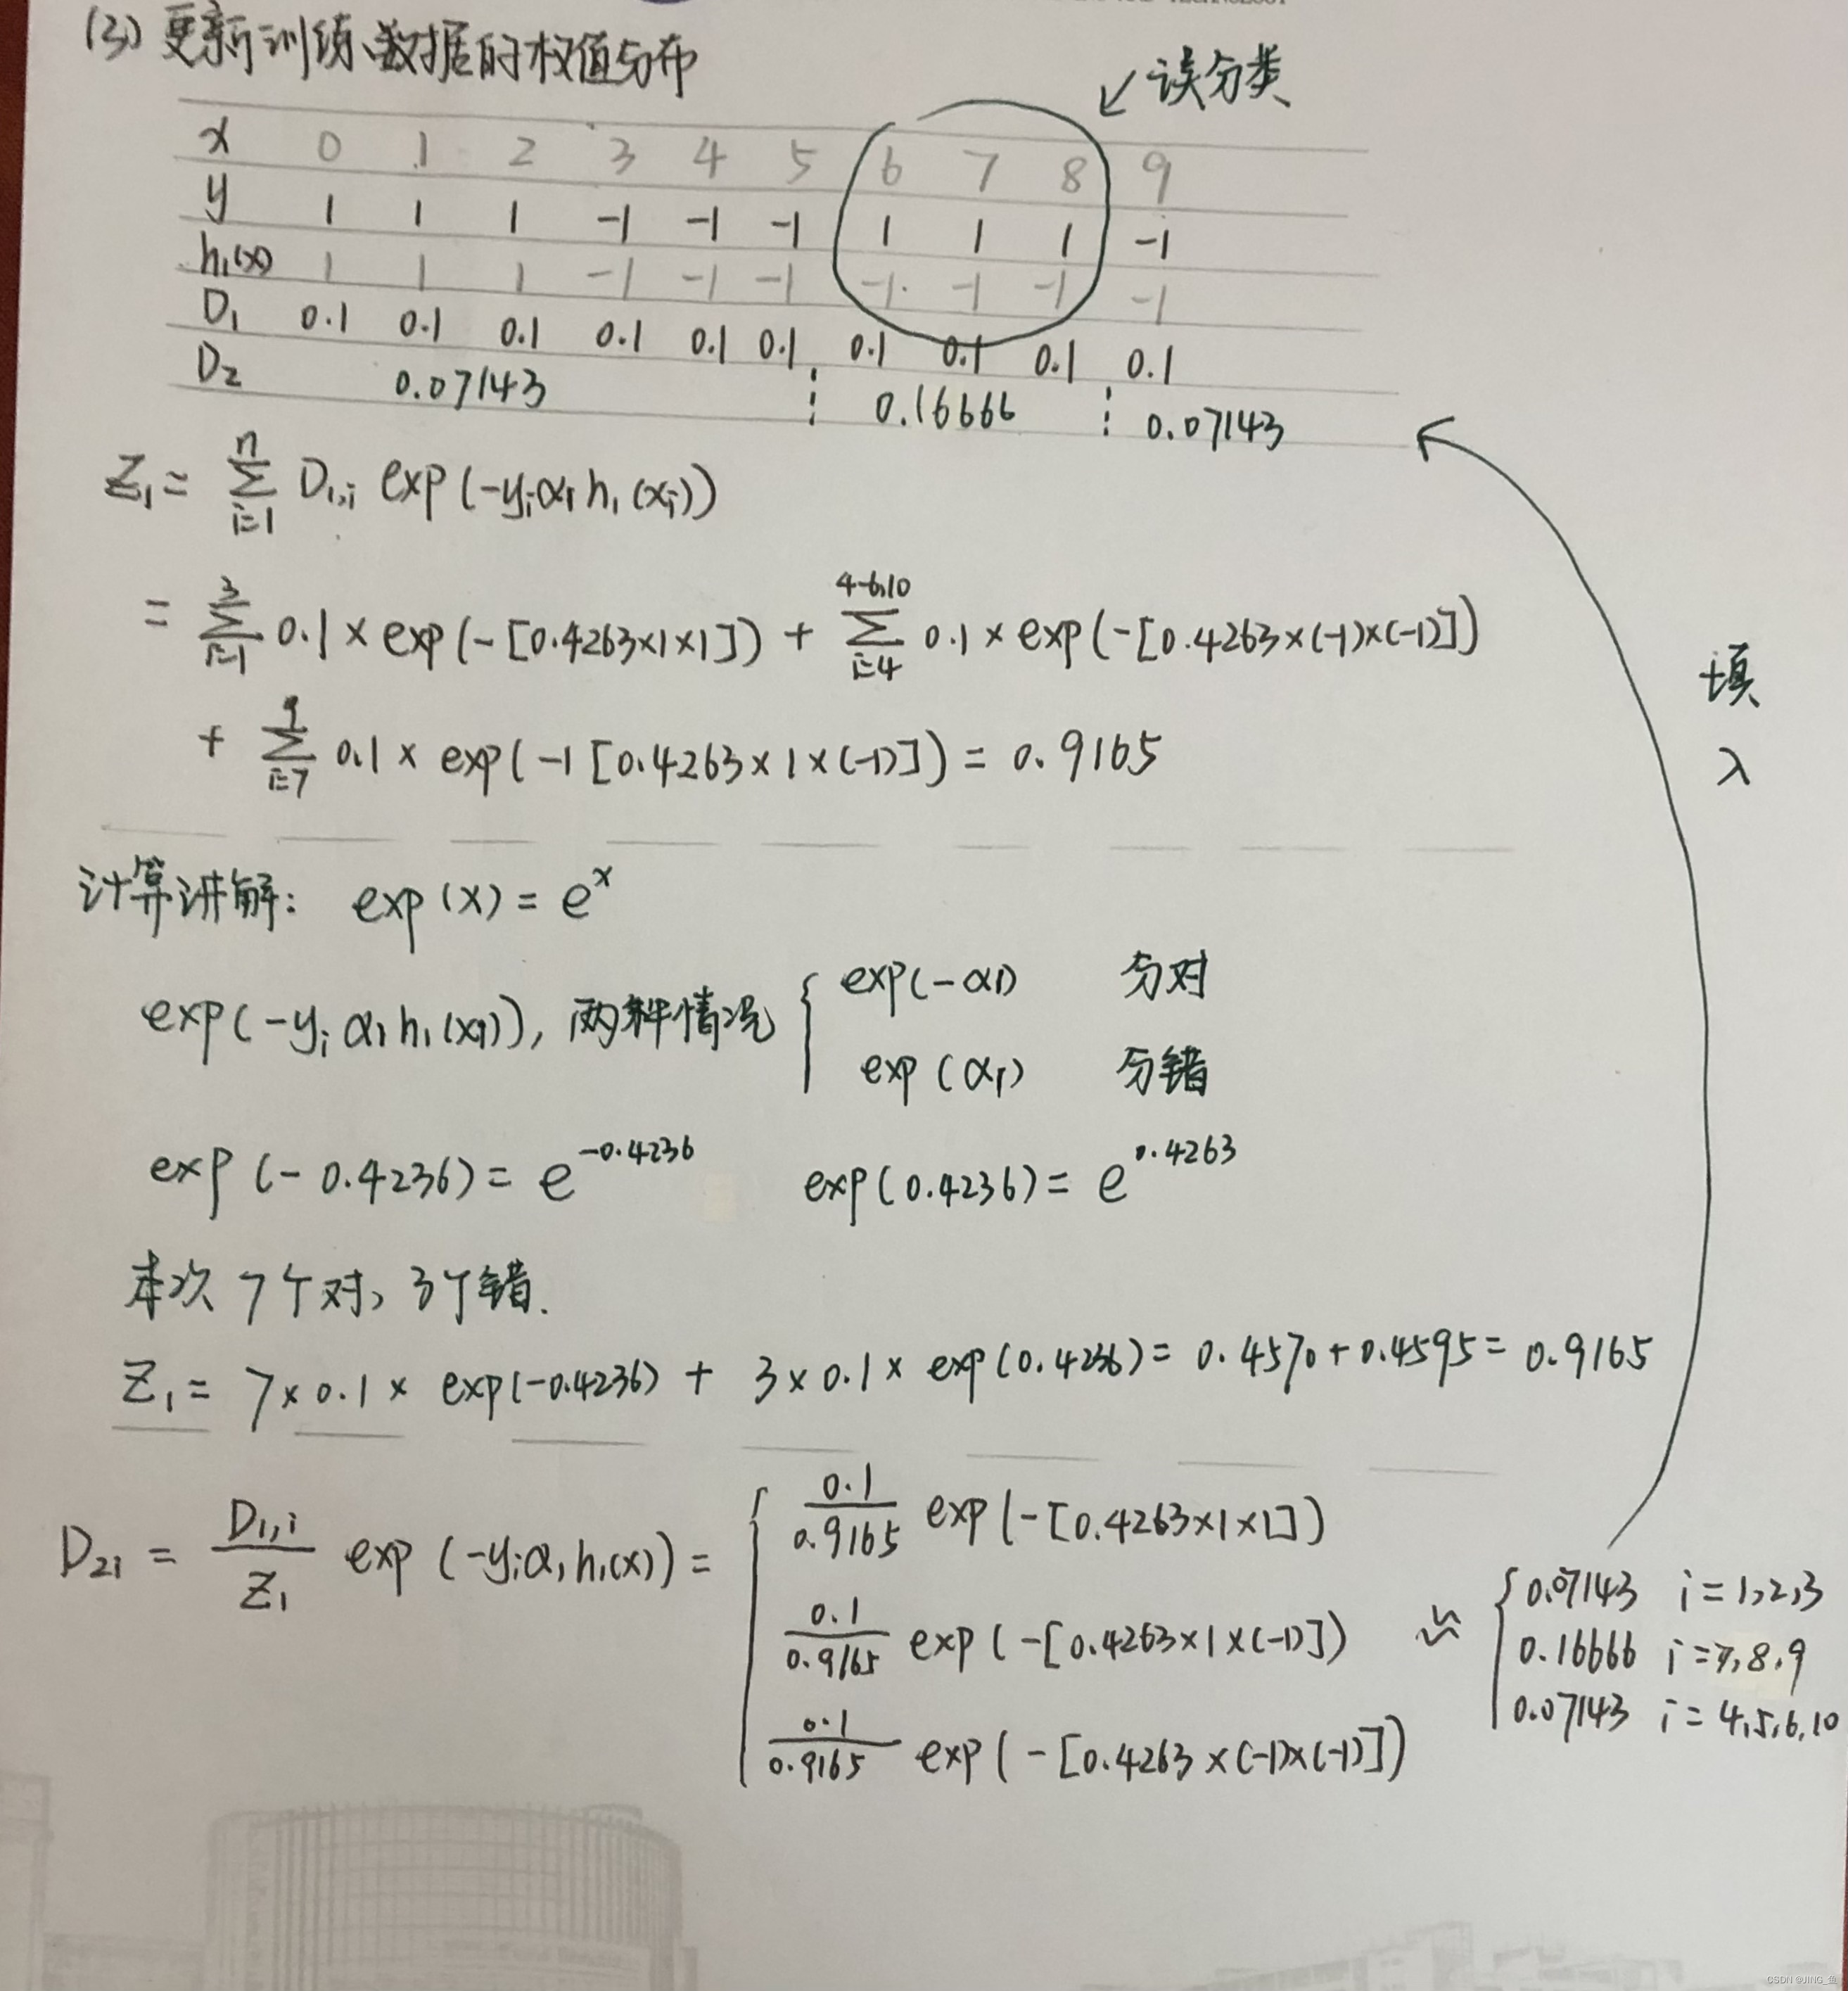 (3) 更新训练数据的权值分布
↙ 误分类
x 0 1 2 3 4 5 6 7 8 9
y 1 1 1 -1 -1 -1 1 1 1 -1
h₁(x) 1 1 1 -1 -1 -1 -1 -1 -1 -1
D₁ 0.1 0.1 0.1 0.1 0.1 0.1 0.1 0.1 0.1 0.1
D₂ 0.07143 0.16666 0.07143
Z₁ = Σ_{i=1}^{n} D₁,ᵢ exp(-yᵢα₁h₁(xᵢ))
= Σ_{i=1}^{3} 0.1 × exp(-[0.4263×1×1]) + Σ_{i=4}^{4-6,10} 0.1 × exp(-[0.4263×(-1)×(-1)])
+ Σ_{i=7}^{9} 0.1 × exp(-1[0.4263×1×(-1)]) = 0.9165
填
入
计算讲解: exp(x) = eˣ
exp(-yᵢα₁h₁(x₁)), 两种情况 { exp(-α1) 分对
exp(α₁) 分错
exp(-0.4236) = e^{-0.4236} exp(0.4236) = e^{0.4263}
本次7个对, 3个错.
Z₁ = 7×0.1× exp(-0.4236) + 3×0.1× exp(0.4236) = 0.4570+0.4595 = 0.9165
D₂ᵢ = D₁,ᵢ/Z₁ exp(-yᵢα₁h₁(x)) = { 0.1/0.9165 exp(-[0.4263×1×1])
0.1/0.9165 exp(-[0.4263×1×(-1)])
0.1/0.9165 exp(-[0.4263×(-1)×(-1)])
≈ { 0.07143 i=1,2,3
0.16666 i=7,8,9
0.07143 i=4,5,6,10
CSDN @JING_鱼